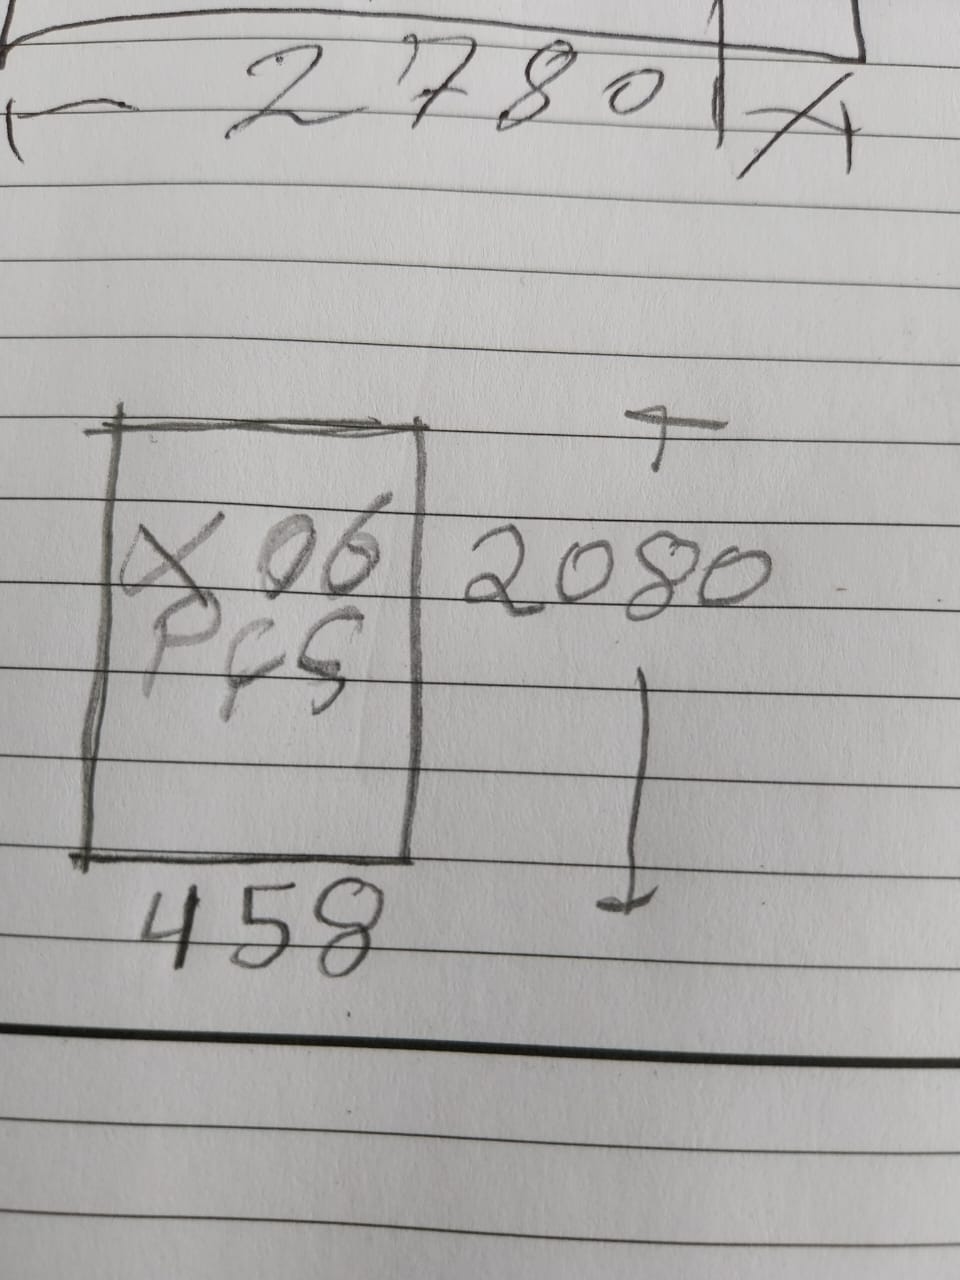 2780
X 06
PCS
2080
458